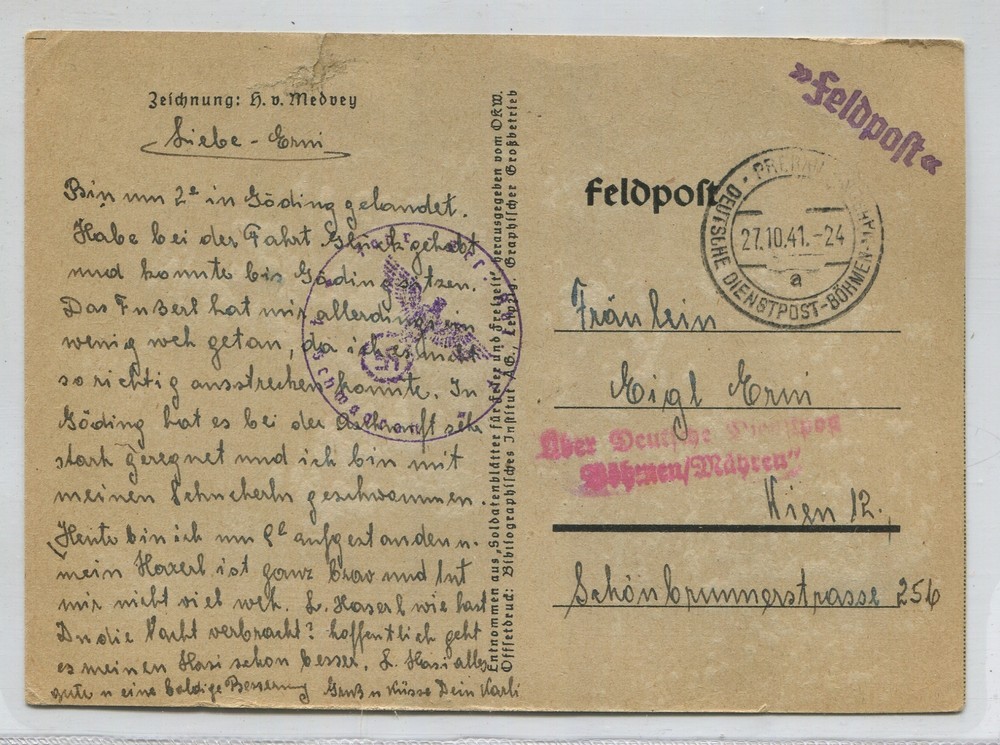 Zeichnung: H. v. Medvey
Liebe - Erni
Bin um 2e in Göding gelandet.
Habe bei der Fahrt Glück gehabt
und konnte bis Göding sitzen.
Das Fußerl hat mir allerdings ein
wenig weh getan, da ich es nicht
so richtig ausstrecken konnte. In
Göding hat es bei der Ankunft sehr
stark geregnet und ich bin mit
meinen Schucherln geschwommen.
Heute bin ich um 9e aufgestanden u.
mein Haxerl ist ganz brav und tut
mir nicht viel weh. L. Haserl wie hast
Du die Nacht verbracht? hoffentlich geht
es meinen Hasi schon besser. L. Hasi alles
gute u eine baldige Besserung Gruß u Küsse Dein Karli
Entnommen aus „Soldatenblätter für Feier und Freizeit“, herausgegeben vom OKW.
Offsetdruck: Bibliographisches Institut A.G., Leipzig, Graphischer Großbetrieb
»Feldpost«
Feldpost
DEUTSCHE DIENSTPOST-BÖHMEN-MÄHREN
27.10.41.-24
a
Fräulein
Eigl Erni
Über Deutsche Dienstpost
Böhmen/Mähren"
Wien 12.,
Schönbrunnerstrasse 256